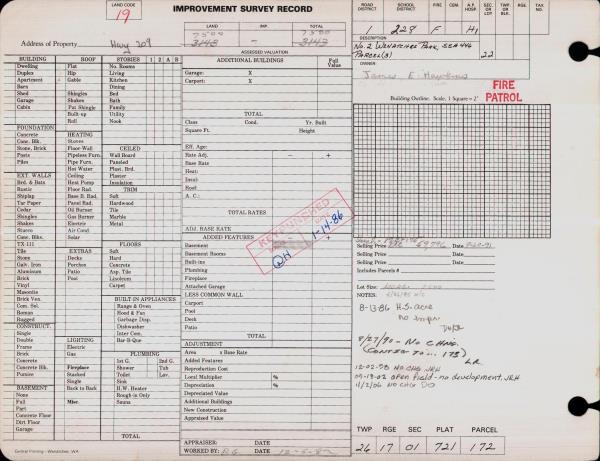 LAND CODE
19
IMPROVEMENT SURVEY RECORD
LAND IMP. TOTAL
7500 7500
3143 - 3143
Address of Property Hwy 209
ASSESSED VALUATION
ROAD DISTRICT SCHOOL DISTRICT FIRE CEM. A.P. HOSP. SEC. OR LOT TWP. OR BLK. RGE. TAX NO.
1 228 F H1
DESCRIPTION
No. 2 Wenatchee Park, SEA 446
Parcel(s) 22
OWNER
James E. Hawkins
FIRE PATROL
Building Outline. Scale, 1 Square = 2'
BUILDING ROOF STORIES 1 2 A B
Dwelling Flat No. Rooms
Duplex Hip Living
Apartment Gable Kitchen
Barn Dining
Shed Shingles Bed
Garage Shakes Bath
Cabin Put. Shingle Family
Built-up Utility
Roll Nook
FOUNDATION
Concrete HEATING
Conc. Blk. Stoves
Stone, Brick Floor-Wall CEILED
Posts Pipeless Furn. Wall Board
Piles Pipe Furn. Paneled
Hot Water Plast. Brd.
EXT. WALLS Ceiling Plaster
Brd. & Bats Heat Pump Insulation
Rustic Floor Rad. TRIM
Shiplap Base Bd. Rad. Soft
Tar Paper Panel Rad. Hardwood
Cedar Oil Burner Tile
Shingles Gas Burner Marble
Shakes Electric Metal
Stucco Air Cond.
Conc. Blks. Solar
TX-111 FLOORS
Tile EXTRAS Soft
Stone Decks Hard
Galv. Iron Porches Concrete
Aluminum Patio Asp. Tile
Brick Pool Linoleum
Vinyl Carpet
Masonite
Brick Ven. BUILT-IN APPLIANCES
Com. Sol. Range & Oven
Roman Hood & Fan
Rugged Garbage Disp.
CONSTRUCT. Dishwasher
Single Inter Com.
Double LIGHTING Bar-B-Que
Frame Electric
Brick Gas PLUMBING
Concrete 1st G. 2nd G.
Concrete Blk. Fireplace Shower Tub
Pumice Stacked Toilet Lav.
Single Sink
BASEMENT Back to Back H.W. Heater
None Rough-in Only
Full Misc. Sauna
Part
Concrete Floor
Dirt Floor
Garage
TOTAL
ADDITIONAL BUILDINGS Full Value
Garage: X
Carport: X
TOTAL
Class Cond. Yr. Built
Square Ft. Height
Eff. Age:
Rate Adj. - +
Base Rate
Heat:
Insul:
Roof
A. C.:
TOTAL RATES
ADJ. BASE RATE
KEYPUNCHED
1-14-86
ADDED FEATURES
Basement
Basement Rooms
Built-ins
Plumbing
Fireplace
Attached Garage
LESS COMMON WALL
Carport
Pool
Deck
Patio
TOTAL
ADJUSTMENT
Area x Base Rate
Added Features
Reproduction Cost
Local Multiplier %
Depreciation %
Depreciated Value
Additional Buildings
New Construction
Appraised Value
APPRAISER: DATE
WORKED BY: DATE
Selling Price Date
Selling Price Date
Includes Parcels #
Lot Size:
NOTES:
8-13-86 H.S. acre
no impr.
8/27/90 - No Chng.
12-02-98 No CHG JRH
09-13-02 open field - no development, JRH
11/2/06 NO CHG DO
TWP RGE SEC PLAT PARCEL
26 17 01 721 172
Central Printing - Wenatchee, WA